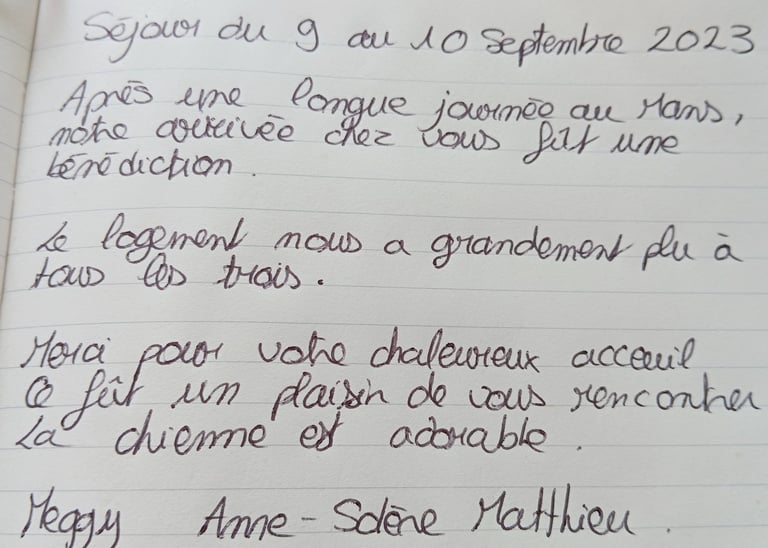 Séjour du 9 au 10 Septembre 2023
Après une longue journée au Mans,
notre arrivée chez vous fût une
bénédiction.
Le logement nous a grandement plu à
tous les trois.
Merci pour votre chaleureux acceuil
Ce fût un plaisir de vous rencontrer
La chienne est adorable.
Meggy Anne-Solène Matthieu.